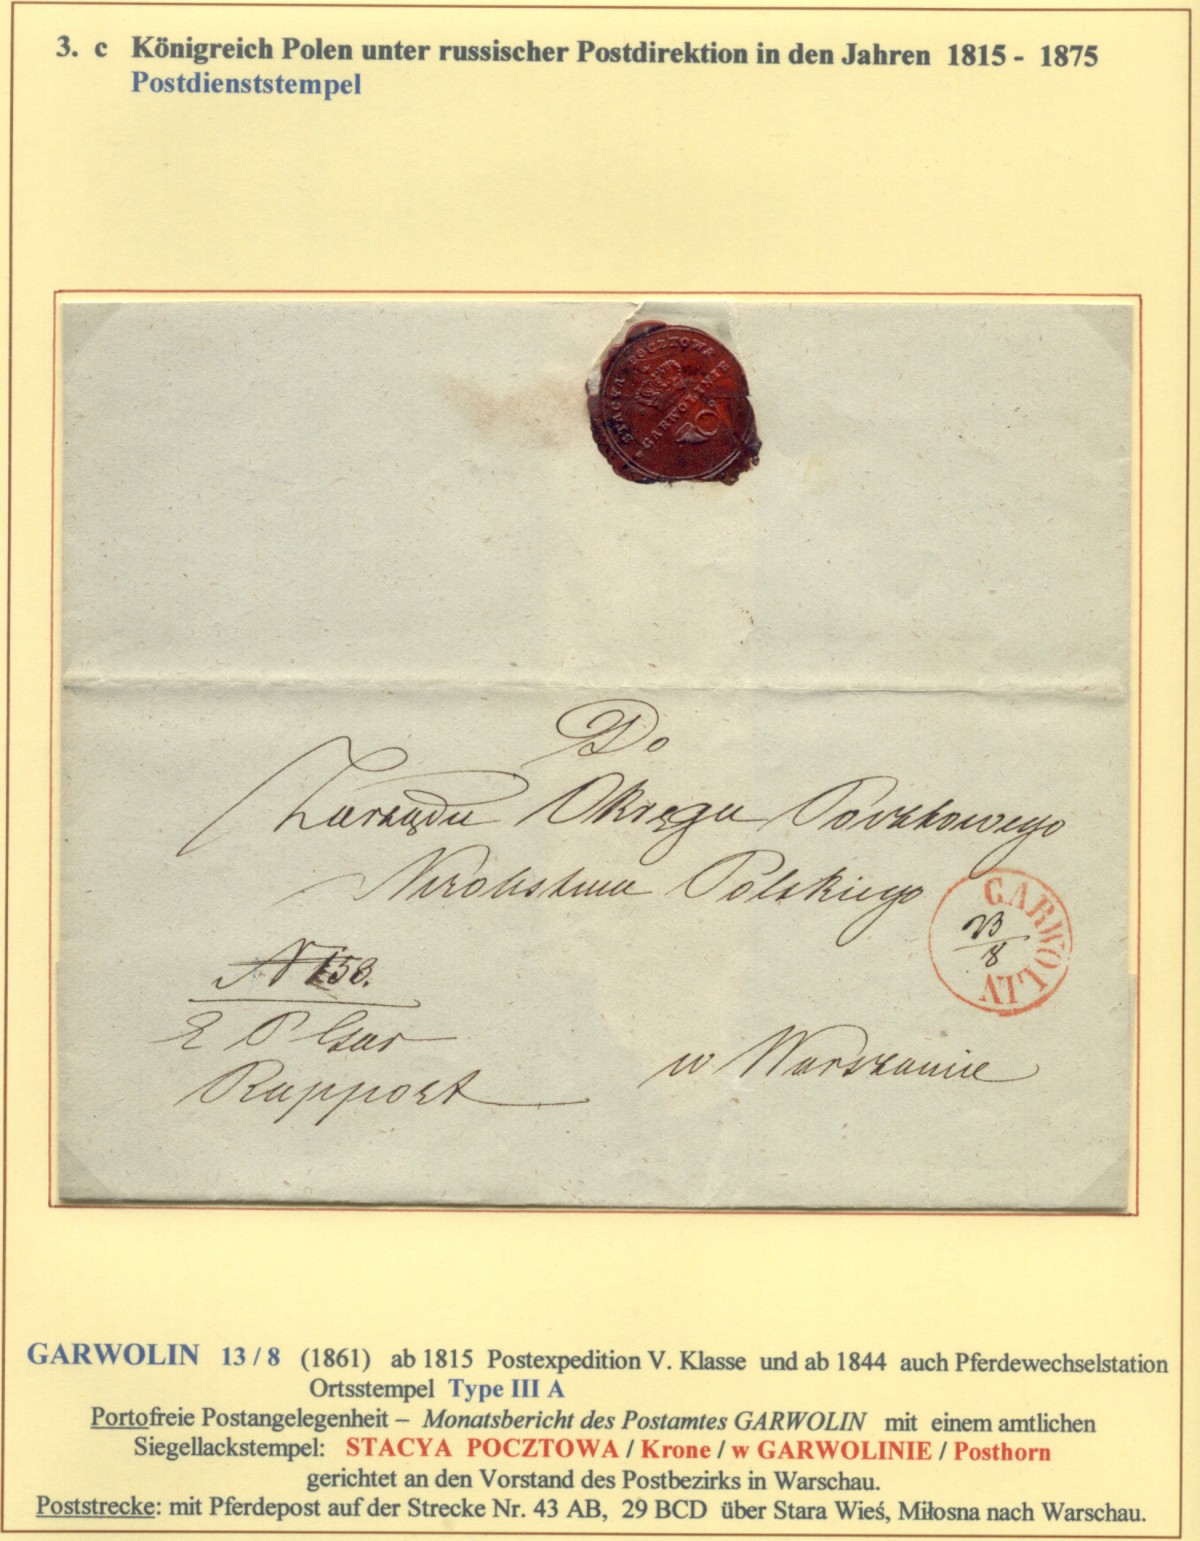 3. c Königreich Polen unter russischer Postdirektion in den Jahren 1815 - 1875
Postdienststempel
STACYA POCZTOWA
W GARWOLINIE
Do
Zarządu Okręgu Pocztowego
Królestwa Polskiego
GARWOLIN
13/8
N 158.
Rapport
w Warszawie
GARWOLIN 13 / 8 (1861) ab 1815 Postexpedition V. Klasse und ab 1844 auch Pferdewechselstation
Ortsstempel Type III A
Portofreie Postangelegenheit – Monatsbericht des Postamtes GARWOLIN mit einem amtlichen
Siegellackstempel: STACYA POCZTOWA / Krone / w GARWOLINIE / Posthorn
gerichtet an den Vorstand des Postbezirks in Warschau.
Poststrecke: mit Pferdepost auf der Strecke Nr. 43 AB, 29 BCD über Stara Wieś, Miłosna nach Warschau.